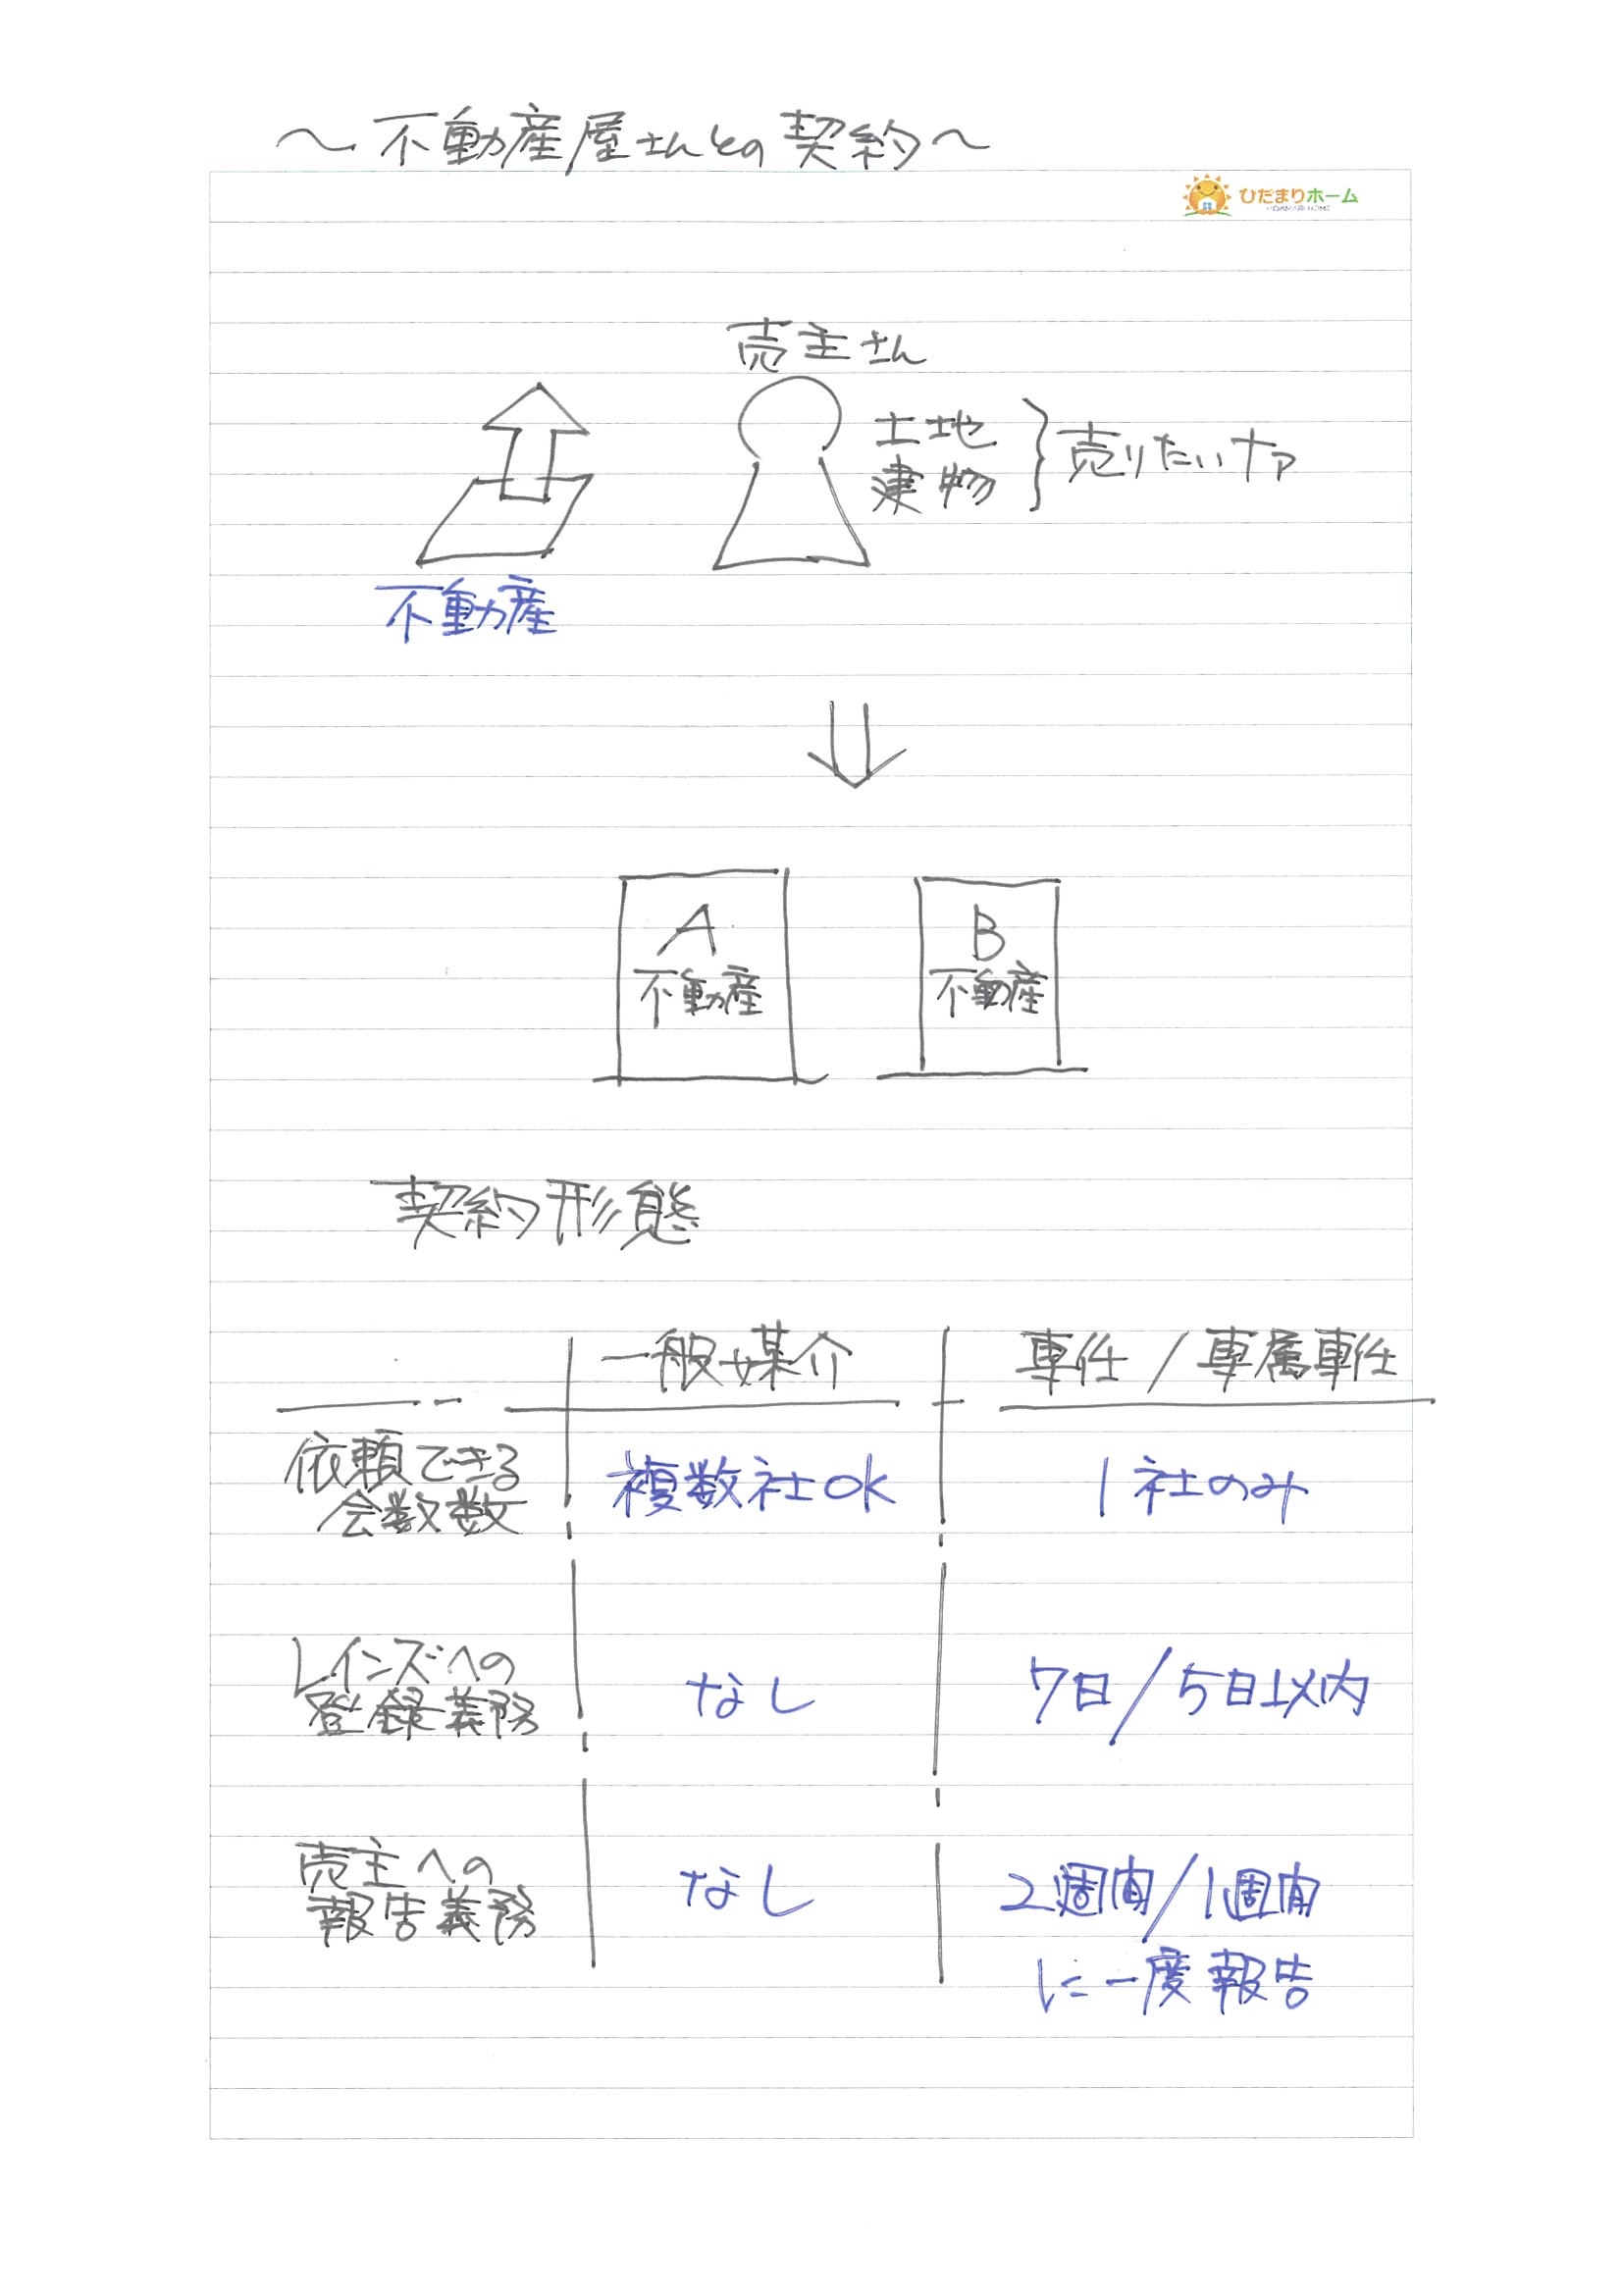 ～不動産屋さんとの契約～
ひだまりホーム
HIDAMARI HOME
売主さん
土地
建物
売りたいナァ
不動産
A
不動産
B
不動産
契約形態
一般媒介
専任/専属専任
依頼できる
会数数
複数社OK
1社のみ
レインズへの
登録義務
なし
7日/5日以内
売主への
報告義務
なし
2週間/1週間
に一度報告